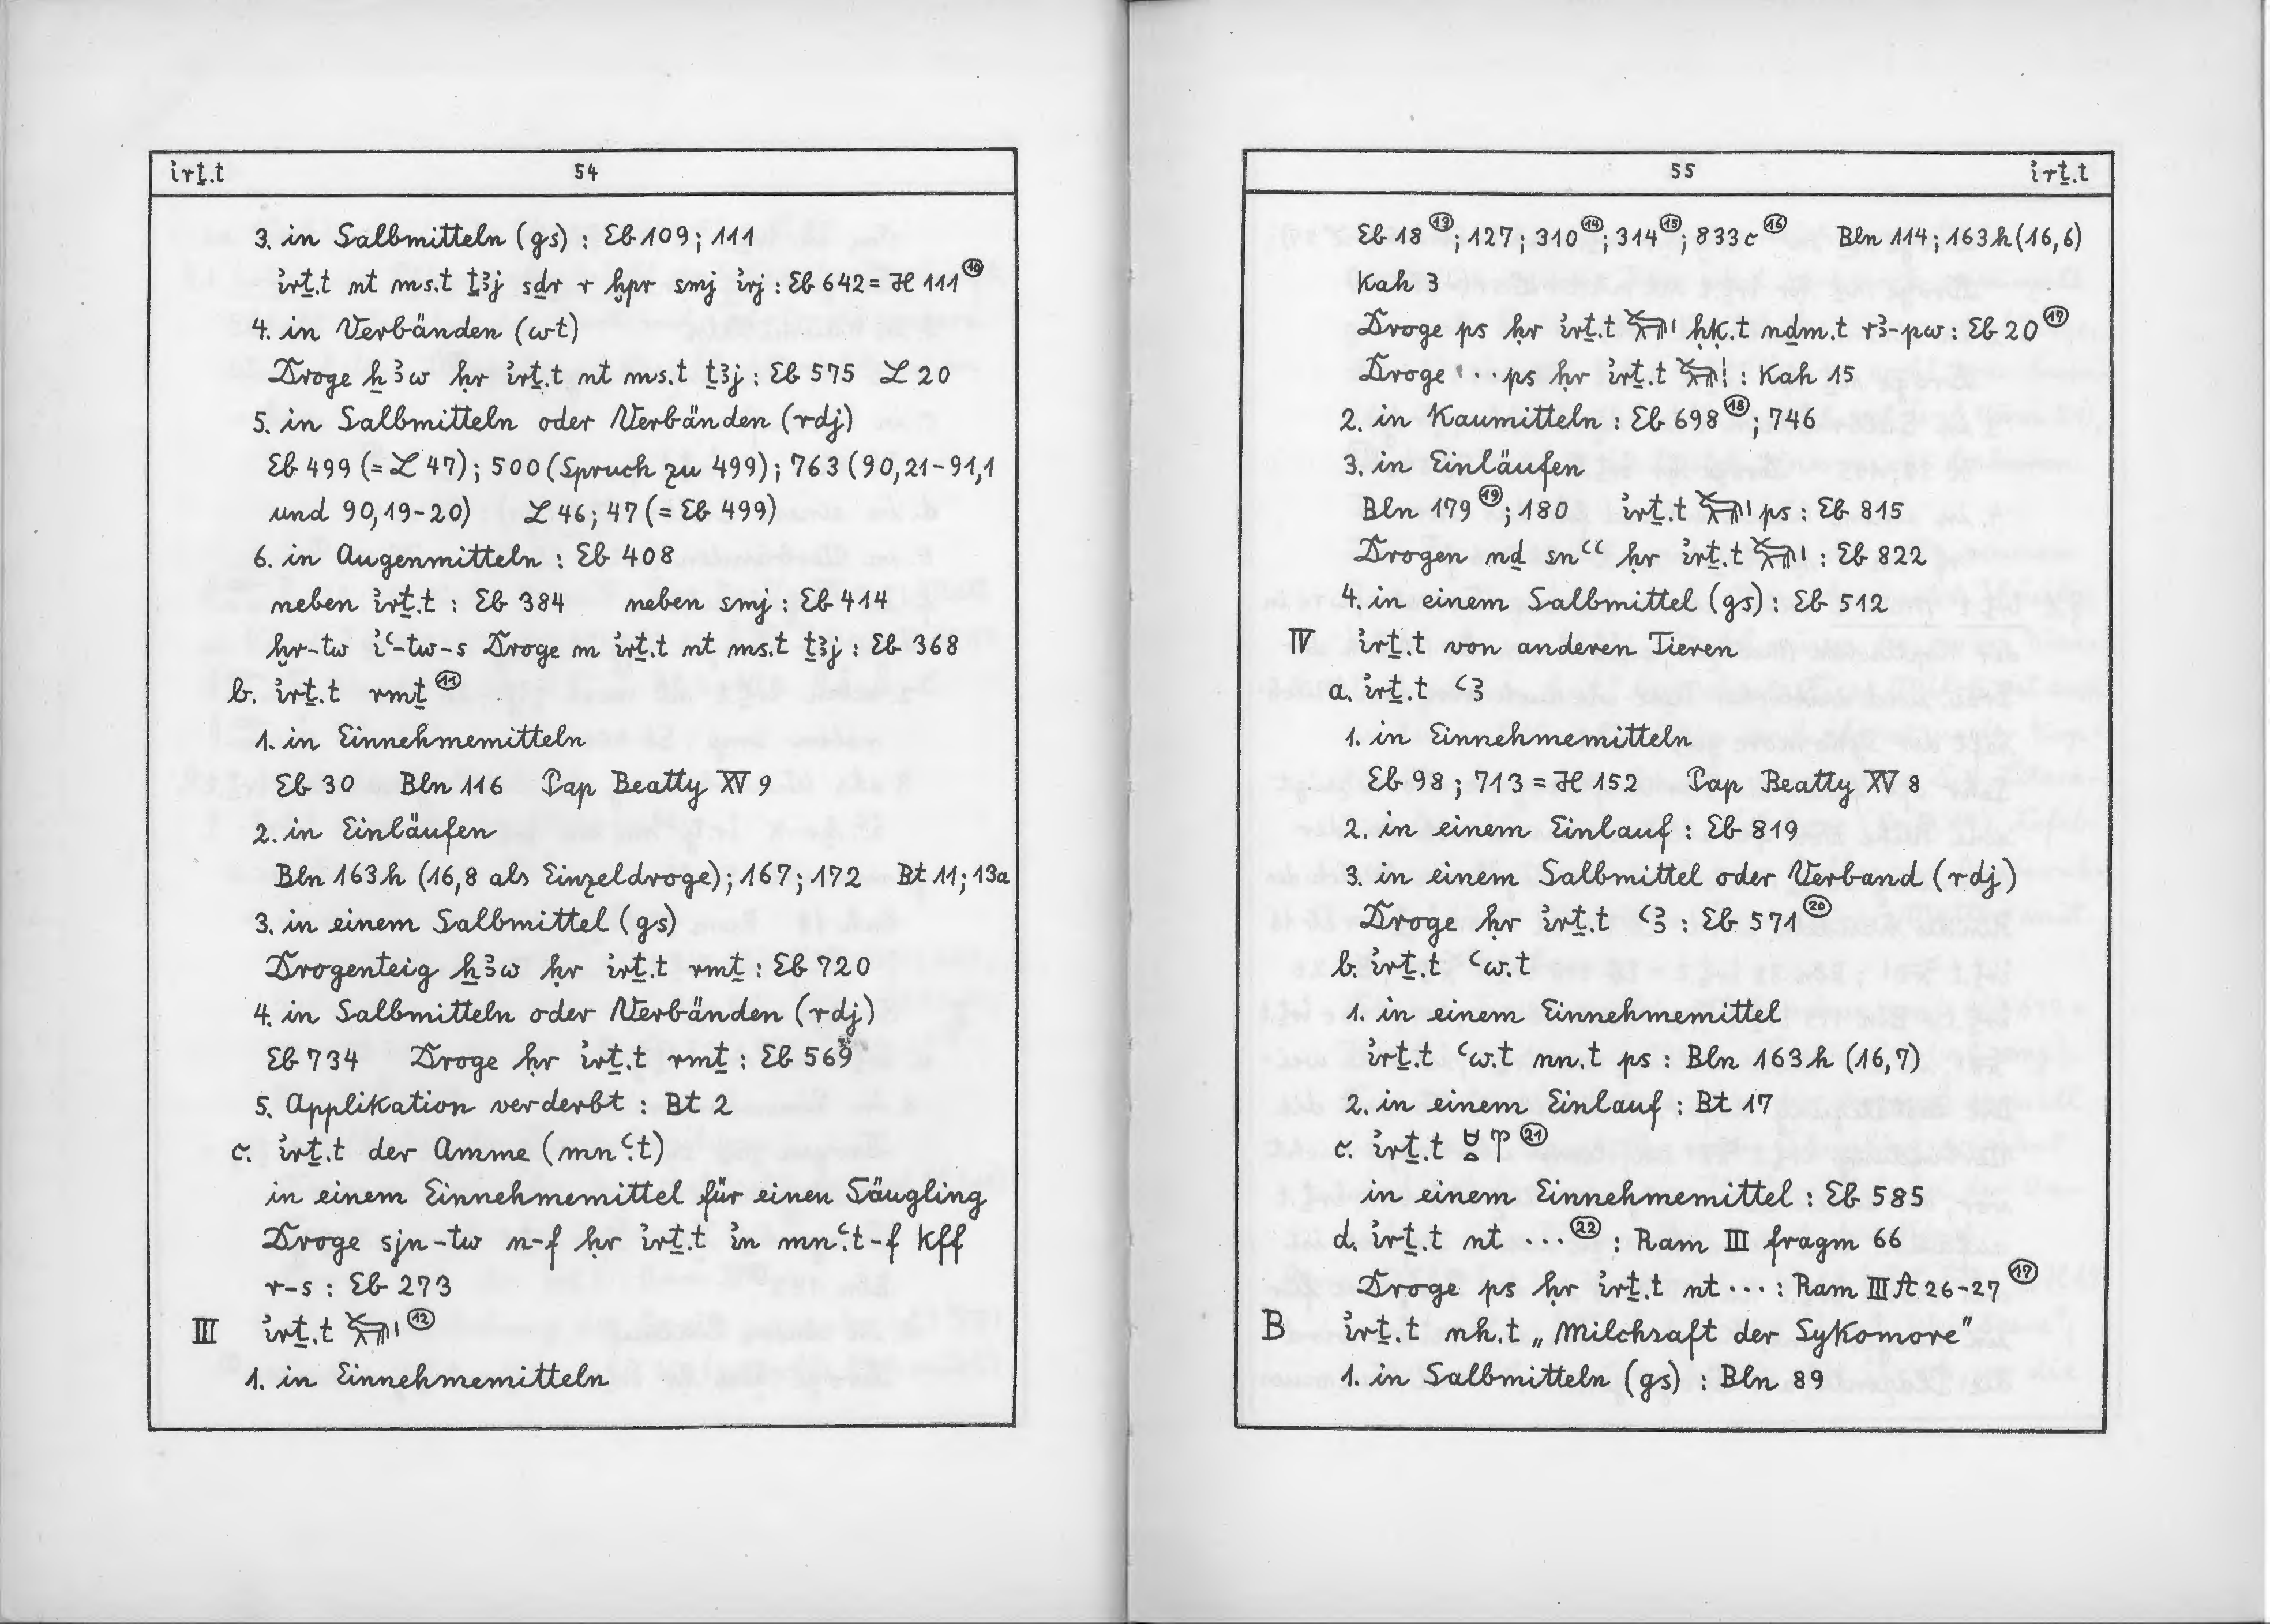 i҆rṯ.t 54
3. in Salbmitteln (gs) : Eb 109; 111
i҆rṯ.t nt ms.t ṯꜣj sḏr r ḫpr smj i҆rj : Eb 642 = H 111 ⑩
4. in Verbänden (wt)
Droge ẖꜣw ḥr i҆rṯ.t nt ms.t ṯꜣj : Eb 575 L 20
5. in Salbmitteln oder Verbänden (rdj)
Eb 499 (= L 47); 500 (Spruch zu 499); 763 (90,21-91,1
und 90,19-20) L 46; 47 (= Eb 499)
6. in Augenmitteln : Eb 408
neben i҆rṯ.t : Eb 384 neben smj : Eb 414
ḫr-tw i҆ꜥ-tw-s Droge m i҆rṯ.t nt ms.t ṯꜣj : Eb 368
b. i҆rṯ.t rmṯ ⑪
1. in Einnehmemitteln
Eb 30 Bln 116 Pap Beatty XV 9
2. in Einläufen
Bln 163h (16,8 als Einzeldroge); 167; 172 Bt 11; 13a
3. in einem Salbmittel (gs)
Drogenteig ẖꜣw ḥr i҆rṯ.t rmṯ : Eb 720
4. in Salbmitteln oder Verbänden (rdj)
Eb 734 Droge ḥr i҆rṯ.t rmṯ : Eb 569
5. Applikation verderbt : Bt 2
c. i҆rṯ.t der Amme (mnꜥ.t)
in einem Einnehmemittel für einen Säugling
Droge sjn-tw n-f ḥr i҆rṯ.t i҆n mnꜥ.t-f kff
r-s : Eb 273
III i҆rṯ.t 𓃒𓏤 ⑫
1. in Einnehmemitteln
55 i҆rṯ.t
Eb 18 ⑬; 127; 310 ⑭; 314 ⑮; 833c ⑯ Bln 114; 163h (16,6)
Kah 3
Droge ps ḥr i҆rṯ.t 𓃒𓏤 ḥḳ.t nḏm.t rꜣ-pw : Eb 20 ⑰
Droge ... ps ḥr i҆rṯ.t 𓃒 : Kah 15
2. in Kaumitteln : Eb 698 ⑱; 746
3. in Einläufen
Bln 179 ⑲; 180 i҆rṯ.t 𓃒𓏤 ps : Eb 815
Drogen nḏ snꜥꜥ ḥr i҆rṯ.t 𓃒𓏤 : Eb 822
4. in einem Salbmittel (gs) : Eb 512
IV i҆rṯ.t von anderen Tieren
a. i҆rṯ.t ꜥꜣ
1. in Einnehmemitteln
Eb 98; 713 = H 152 Pap Beatty XV 8
2. in einem Einlauf : Eb 819
3. in einem Salbmittel oder Verband (rdj)
Droge ḥr i҆rṯ.t ꜥꜣ : Eb 571 ⑳
b. i҆rṯ.t ꜥw.t
1. in einem Einnehmemittel
i҆rṯ.t ꜥw.t nn.t ps : Bln 163h (16,7)
2. in einem Einlauf : Bt 17
c. i҆rṯ.t 𓄋 ㉑
in einem Einnehmemittel : Eb 585
d. i҆rṯ.t nt ... ㉒ : Ram III fragm 66
Droge ps ḥr i҆rṯ.t nt ... : Ram III A 26-27 ⑰
B i҆rṯ.t nh.t „Milchsaft der Sykomore"
1. in Salbmitteln (gs) : Bln 89